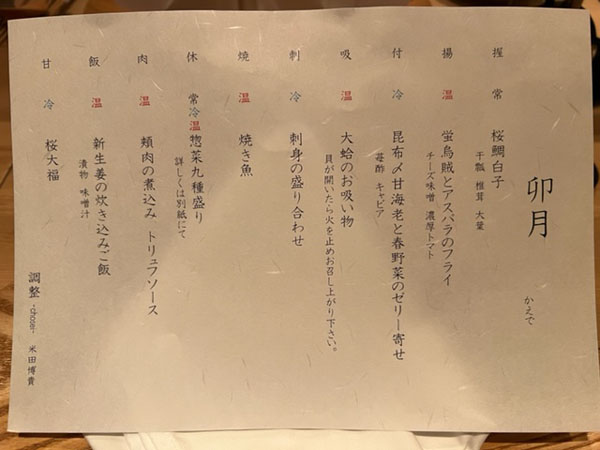 卯月
かえで
握 常 桜鯛白子
干瓢 椎茸 大葉
揚 温 蛍烏賊とアスパラのフライ
チーズ味噌 濃厚トマト
付 冷 昆布〆甘海老と春野菜のゼリー寄せ
苺酢 キャビア
吸 温 大蛤のお吸い物
貝が開いたら火を止めお召し上がり下さい。
刺 冷 刺身の盛り合わせ
焼 温 焼き魚
休 常冷温 惣菜九種盛り
詳しくは別紙にて
肉 温 頬肉の煮込み トリュフソース
飯 温 新生姜の炊き込みご飯
漬物 味噌汁
甘 冷 桜大福
調整 -chosei- 米田博貴